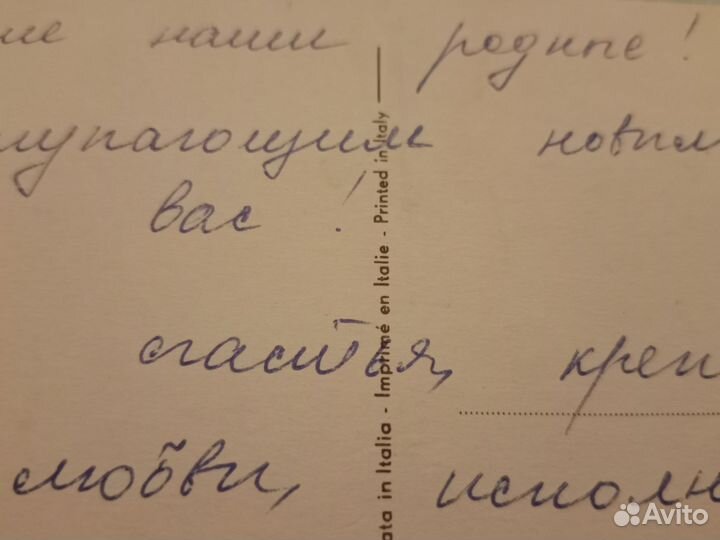 ие наши родные!
тупающим новым
вас!
счастья, креп
любви, исполн
ata in Italia - Imprimé en Italie - Printed in Italy
Avito